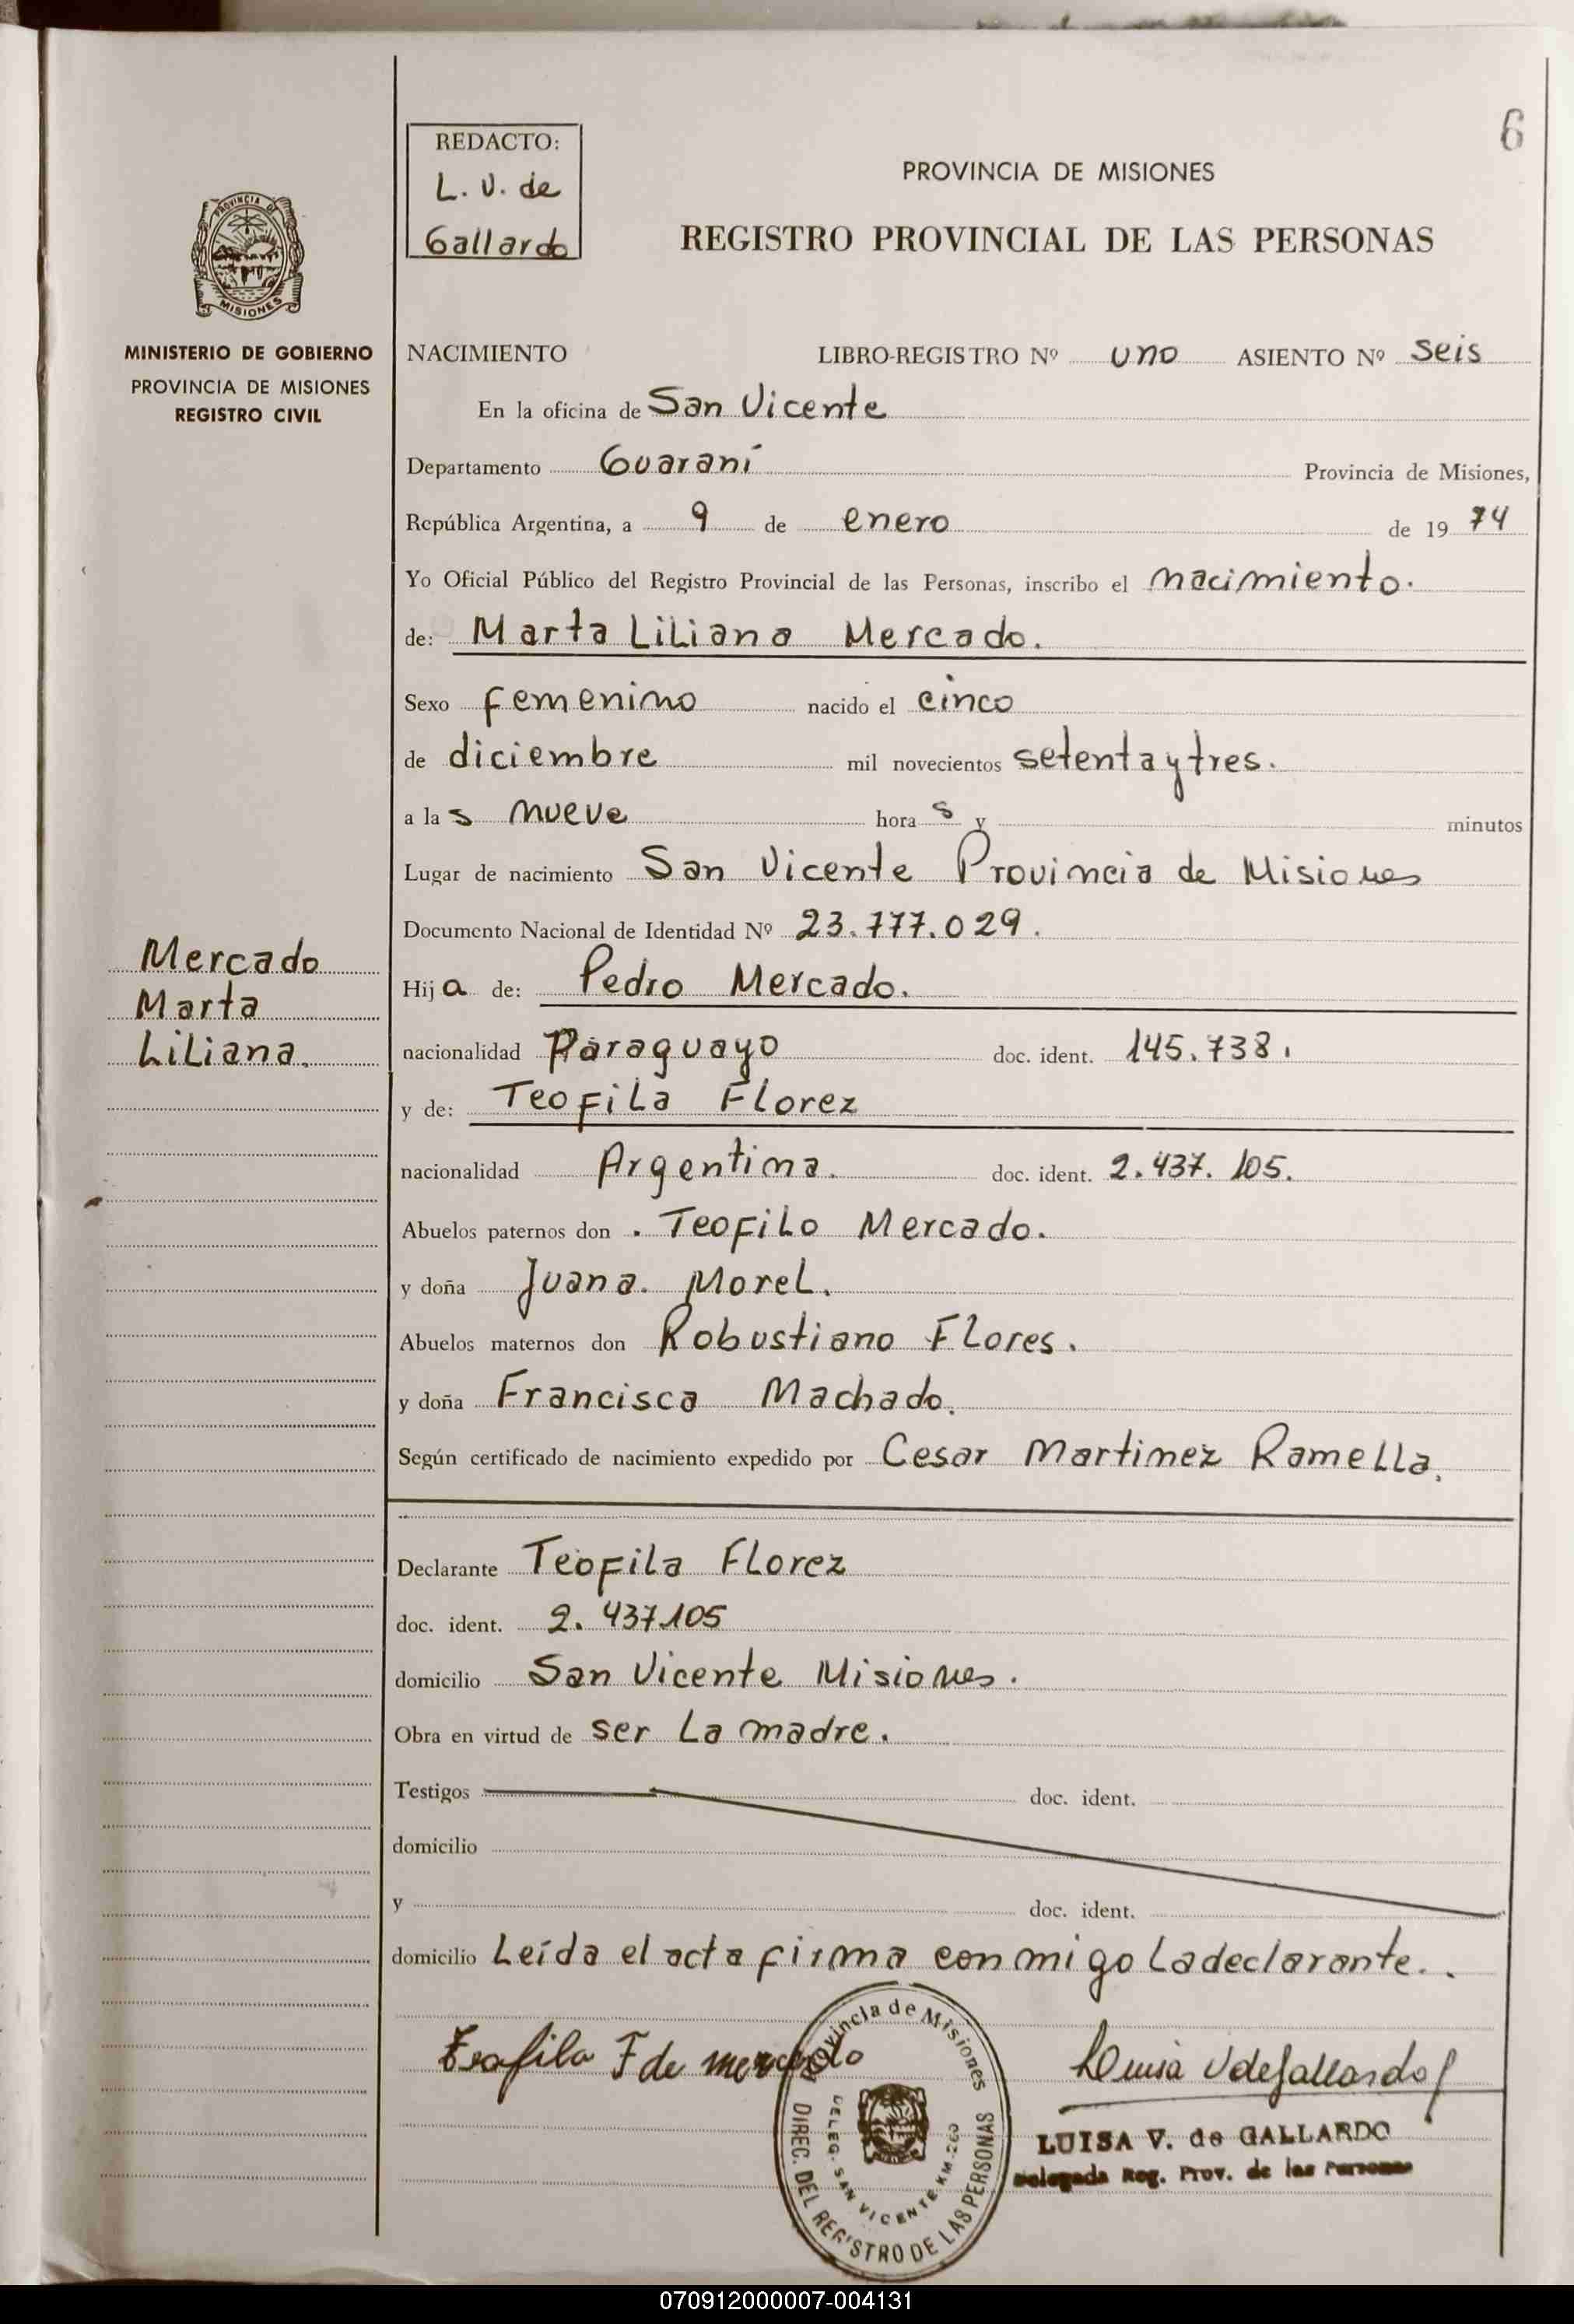 6
REDACTO:
L. V. de
Gallardo
PROVINCIA DE MISIONES
REGISTRO PROVINCIAL DE LAS PERSONAS
PROVINCIA DE
MISIONES
MINISTERIO DE GOBIERNO
PROVINCIA DE MISIONES
REGISTRO CIVIL
NACIMIENTO LIBRO-REGISTRO Nº uno ASIENTO Nº seis
En la oficina de San Vicente
Departamento Guaraní Provincia de Misiones,
República Argentina, a 9 de enero de 1974
Yo Oficial Público del Registro Provincial de las Personas, inscribo el nacimiento.
de: Marta Liliana Mercado.
Sexo femenino nacido el cinco
de diciembre mil novecientos setenta y tres.
a las nueve horas y minutos
Lugar de nacimiento San Vicente Provincia de Misiones
Documento Nacional de Identidad Nº 23.777.029.
Mercado
Marta
Liliana.
Hija de: Pedro Mercado.
nacionalidad Paraguayo doc. ident. 145.738.
y de: Teofila Florez
nacionalidad Argentina. doc. ident. 2.437.105.
Abuelos paternos don . Teofilo Mercado.
y doña Juana. Morel.
Abuelos maternos don Robustiano Flores.
y doña Francisca Machado.
Según certificado de nacimiento expedido por Cesar Martinez Ramella.
Declarante Teofila Florez
doc. ident. 2.437.105
domicilio San Vicente Misiones.
Obra en virtud de ser la madre.
Testigos doc. ident.
domicilio
y doc. ident.
domicilio Leída el acta firma conmigo la declarante..
Teofila F de mercado
Luisa V de Gallardo
Provincia de Misiones
DIREC. DEL REGISTRO DE LAS PERSONAS
DELEG. SAN VICENTE KM-260
LUISA V. de GALLARDO
Delegada Reg. Prov. de las Personas
070912000007-004131